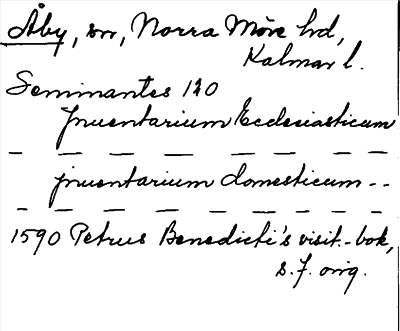 Åby, sn, Norra Möre hd,
Kalmar l.
Seminantes 120
Inventarium Ecclesiasticum
— — — — — — — —
Inventarium domesticum - -
— — — — — — — — —
1590 Petrus Benedicti's visit.-bok,
s. 7. orig.